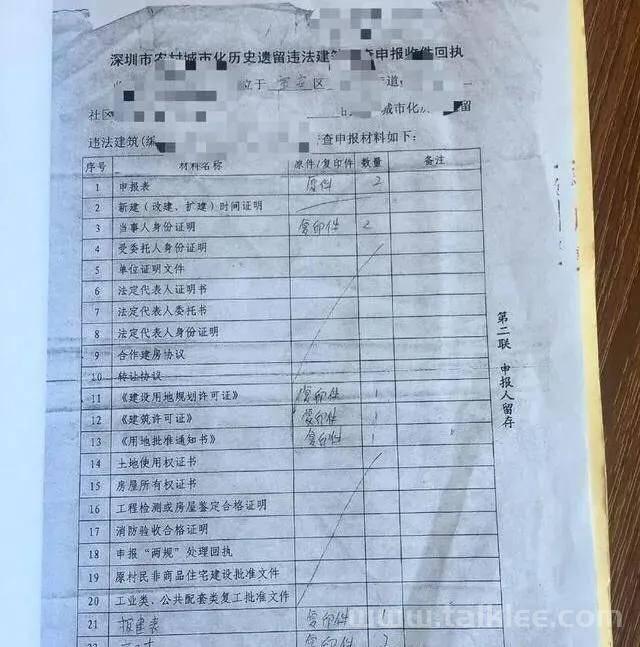 深圳市农村城市化历史遗留违法建筑 查申报收件回执
位于 宝安区 道,
社区 城市化 留
违法建筑(编 查申报材料如下:
序号 材料名称 原件/复印件 数量 备注
1 申报表 原件 2
2 新建(改建、扩建)时间证明
3 当事人身份证明 复印件 2
4 受委托人身份证明
5 单位证明文件
6 法定代表人证明书
7 法定代表人委托书
8 法定代表人身份证明
9 合作建房协议
10 转让协议
11 《建设用地规划许可证》 复印件 1
12 《建筑许可证》 复印件 1
13 《用地批准通知书》 复印件 1
14 土地使用权证书
15 房屋所有权证书
16 工程检测或房屋鉴定合格证明
17 消防验收合格证明
18 申报“两规”处理回执
19 原村民非商品住宅建设批准文件
20 工业类、公共配套类复工批准文件
21 报建表 复印件 1
22 复印件 2
第二联 申报人留存
www.talklee.com